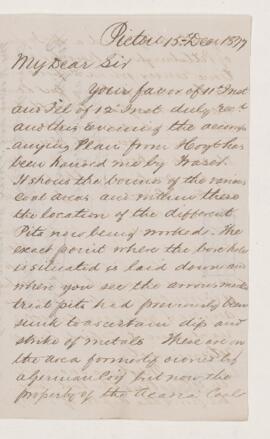 Pictou 15th Dec 1877
My Dear Sir
Your favor of 11th Inst
and Tel of 12th Inst duly recd
and this Evening the accomp
anying Plan from Hoyt has
been handed me by Fraser.
It shows the bounds of the various
coal areas and within these
the location of the different
Pits now being worked. The
exact point where the bore hole
is situated is laid down and
where you see the arrows marked
trial pits had previously been
sunk to ascertain dip and
strike of metals. These are on
the area formerly owned by
a German Coy but now the
property of the Acadia Coal